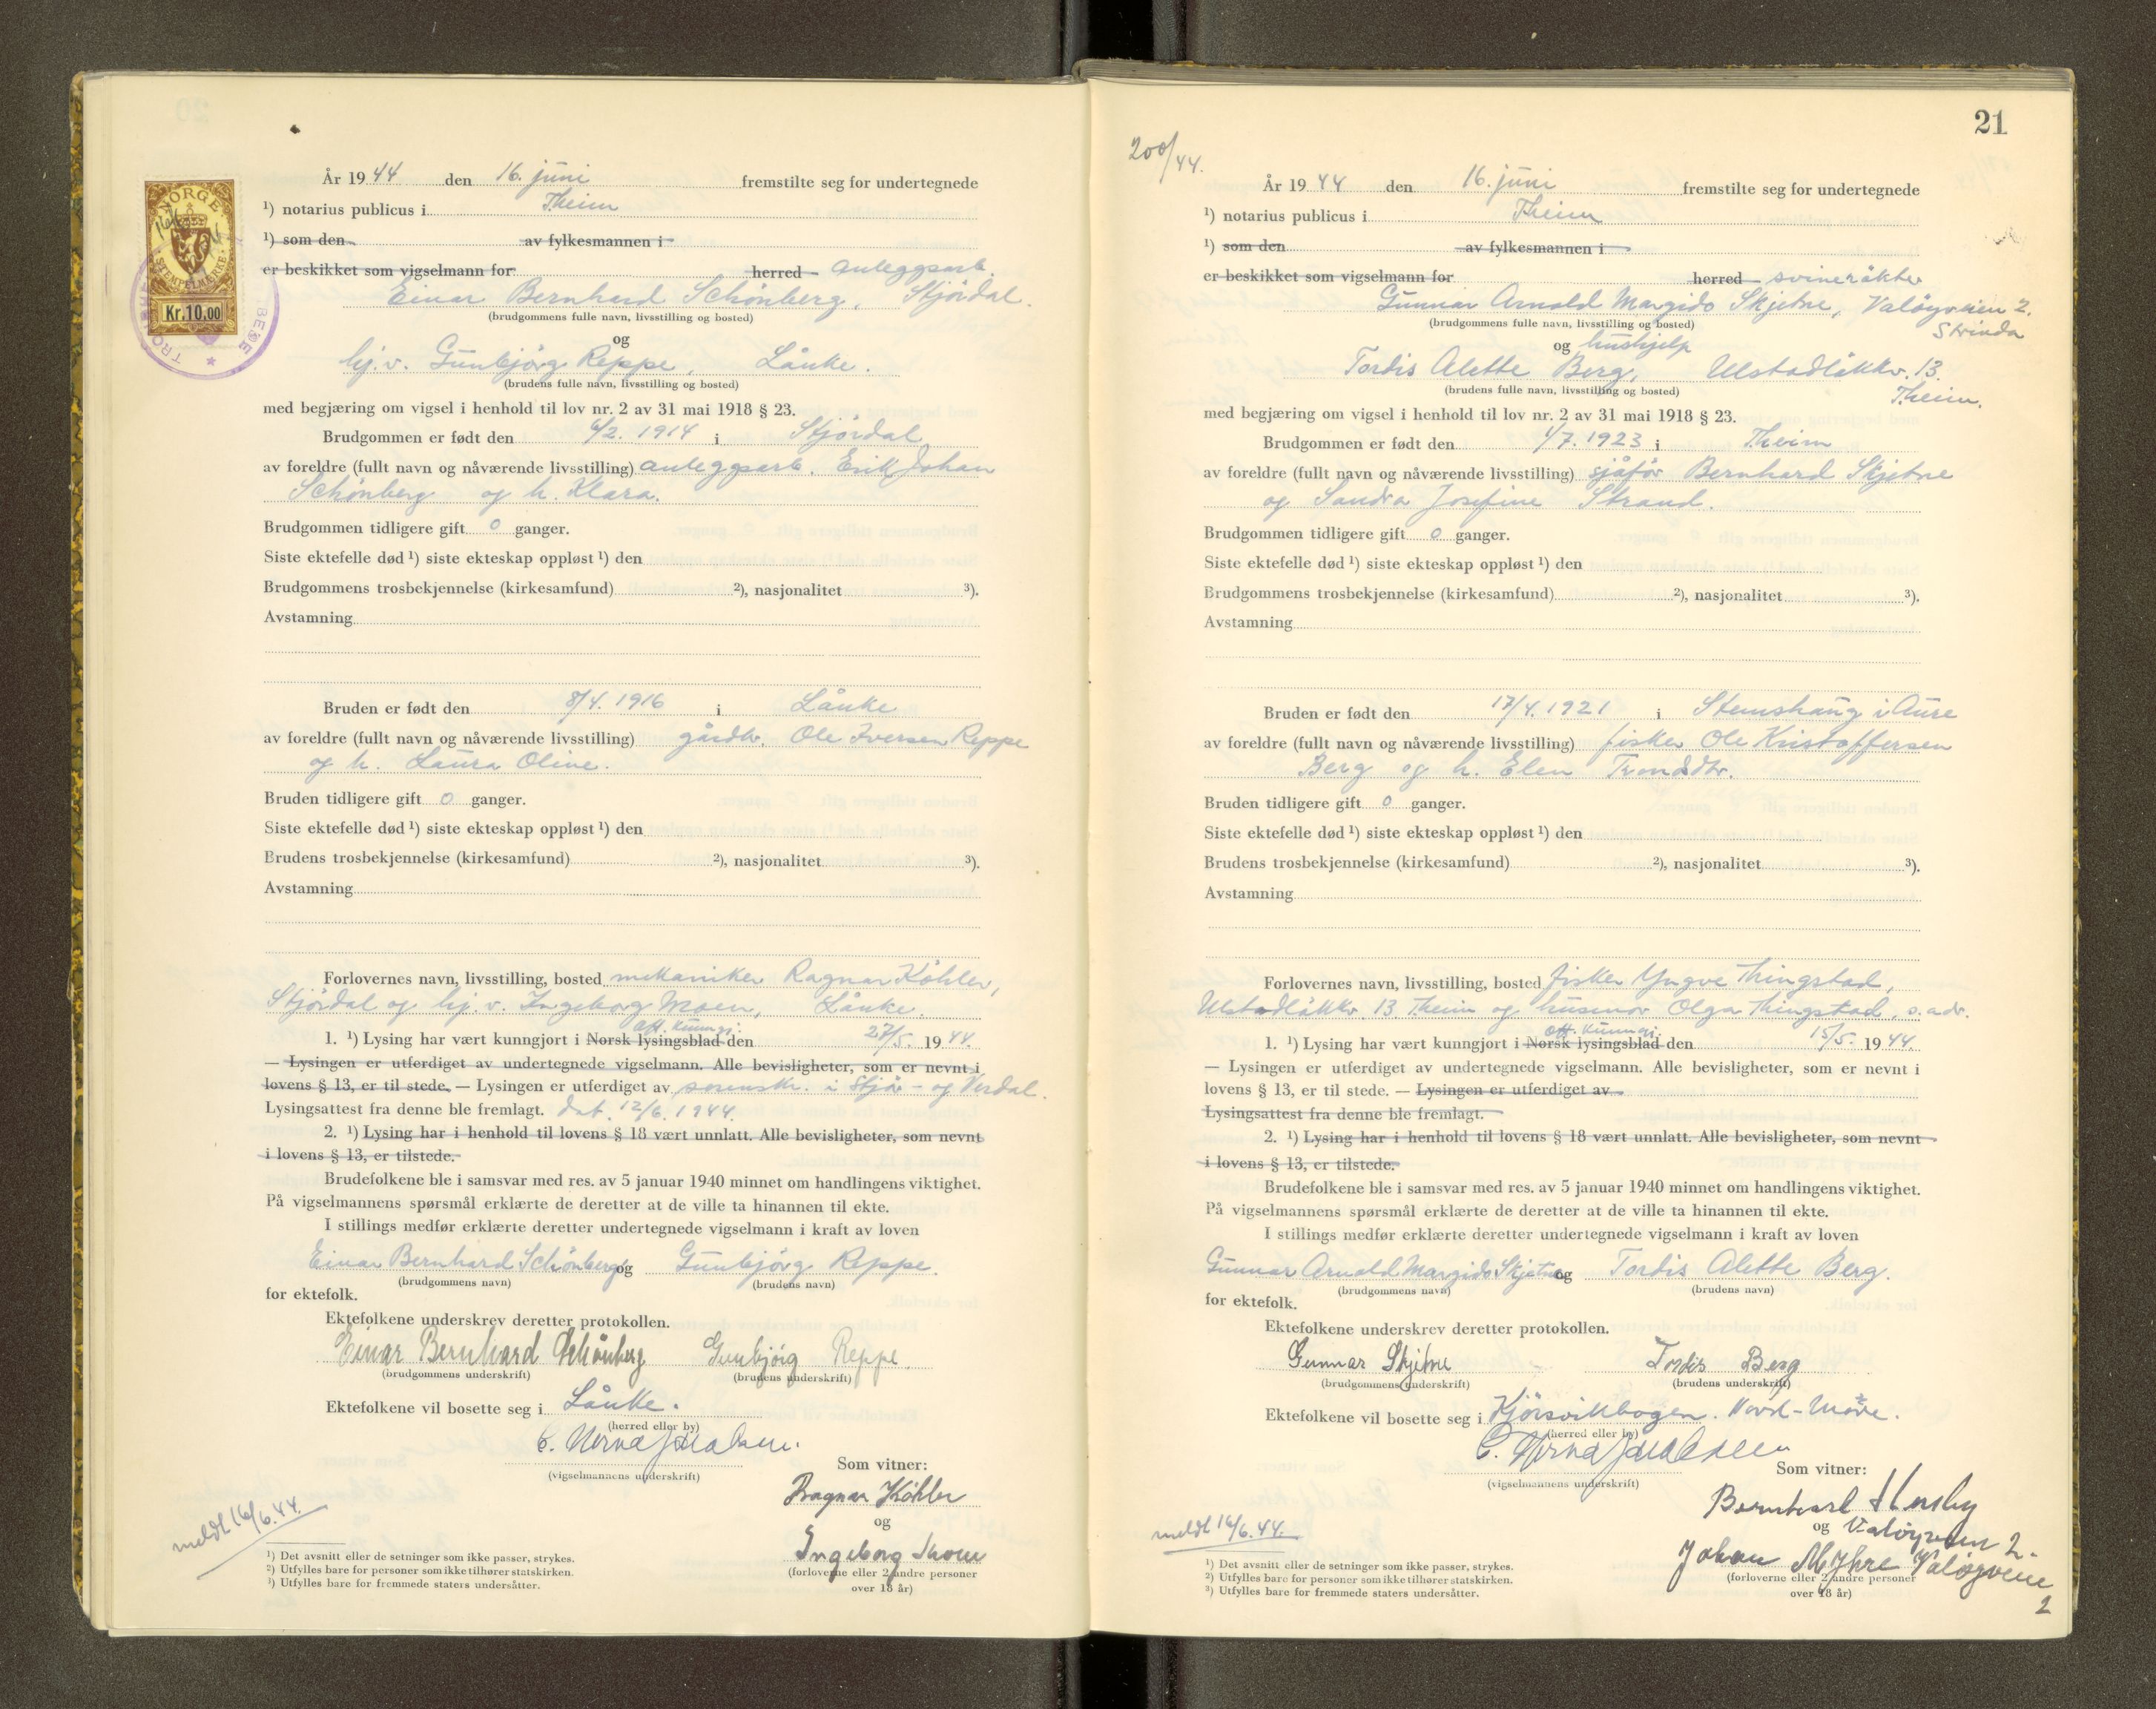 NORGE
16/6
STEMPELMERKE
Kr.10.00
År 1944 den 16. juni fremstilte seg for undertegnede
¹) notarius publicus i Theim
¹) som den av fylkesmannen i
er beskikket som vigselmann for herred anleggsarb.
Einar Bernhard Schönberg, Stjördal.
(brudgommens fulle navn, livsstilling og bosted)
og
hj.v. Gunbjörg Reppe, Lånke.
(brudens fulle navn, livsstilling og bosted)
med begjæring om vigsel i henhold til lov nr. 2 av 31 mai 1918 § 23.
Brudgommen er født den 6/2. 1914 i Stjördal
av foreldre (fullt navn og nåværende livsstilling) anleggsarb. Erik Johan
Schönberg og h. Klara.
Brudgommen tidligere gift 0 ganger.
Siste ektefelle død ¹) siste ekteskap oppløst ¹) den
Brudgommens trosbekjennelse (kirkesamfund) ²), nasjonalitet ³).
Avstamning
Bruden er født den 8/4. 1916 i Lånke
av foreldre (fullt navn og nåværende livsstilling) gårdbr. Ole Iversen Reppe
og h. Laura Oline.
Bruden tidligere gift 0 ganger.
Siste ektefelle død ¹) siste ekteskap oppløst ¹) den
Brudens trosbekjennelse (kirkesamfund) ²), nasjonalitet ³).
Avstamning
Forlovernes navn, livsstilling, bosted mekaniker Ragnar Köhler,
Stjördal og hj. v. Ingeborg Moen, Lånke.
off. kunngj.
1. ¹) Lysing har vært kunngjort i Norsk lysingsblad den 27/5. 1944.
— Lysingen er utferdiget av undertegnede vigselmann. Alle bevisligheter, som er nevnt i
lovens § 13, er til stede. — Lysingen er utferdiget av sorenskr. i Stjør- og Verdal.
Lysingsattest fra denne ble fremlagt. dat. 12/6. 1944.
2. ¹) Lysing har i henhold til lovens § 18 vært unnlatt. Alle bevisligheter, som nevnt
i lovens § 13, er tilstede.
Brudefolkene ble i samsvar med res. av 5 januar 1940 minnet om handlingens viktighet.
På vigselmannens spørsmål erklærte de deretter at de ville ta hinannen til ekte.
I stillings medfør erklærte deretter undertegnede vigselmann i kraft av loven
Einar Bernhard Schönberg og Gunbjörg Reppe.
(brudgommens navn) (brudens navn)
for ektefolk.
Ektefolkene underskrev deretter protokollen.
Einar Bernhard Schönberg Gunbjörg Reppe.
(brudgommens underskrift) (brudens underskrift)
Ektefolkene vil bosette seg i Lånke.
(herred eller by)
(vigselmannens underskrift)
Som vitner:
Ragnar Köhler
og
Ingeborg Moen
(forloverne eller 2 andre personer
over 18 år)
meldt 16/6.44.
¹) Det avsnitt eller de setninger som ikke passer, strykes.
²) Utfylles bare for personer som ikke tilhører statskirken.
³) Utfylles bare for fremmede staters undersåtter.
21
200/44.
År 1944 den 16. juni fremstilte seg for undertegnede
¹) notarius publicus i Theim
¹) som den av fylkesmannen i
er beskikket som vigselmann for herred svinerökter
Gunnar Arnold Margido Skjetne, Valöyveien 2.
Strinda
(brudgommens fulle navn, livsstilling og bosted)
og hushjelp
Tordis Alette Berg, Ulstadløkkv. 13.
(brudens fulle navn, livsstilling og bosted) Theim.
med begjæring om vigsel i henhold til lov nr. 2 av 31 mai 1918 § 23.
Brudgommen er født den 1/7. 1923 i Theim
av foreldre (fullt navn og nåværende livsstilling) sjåför Bernhard Skjetne
og Sandra Josefine Strand.
Brudgommen tidligere gift 0 ganger.
Siste ektefelle død ¹) siste ekteskap oppløst ¹) den
Brudgommens trosbekjennelse (kirkesamfund) ²), nasjonalitet ³).
Avstamning
Bruden er født den 17/4. 1921 i Stemshaug i Aure
av foreldre (fullt navn og nåværende livsstilling) fisker Ole Kristoffersen
Berg og h. Elen Trondsdtr.
Bruden tidligere gift 0 ganger.
Siste ektefelle død ¹) siste ekteskap oppløst ¹) den
Brudens trosbekjennelse (kirkesamfund) ²), nasjonalitet ³).
Avstamning
Forlovernes navn, livsstilling, bosted fisker Yngve Thingstad,
Ulstadløkkv. 13 Theim og husmor Olga Thingstad, s. adr.
off. kunngj.
1. ¹) Lysing har vært kunngjort i Norsk lysingsblad den 15/5. 1944.
— Lysingen er utferdiget av undertegnede vigselmann. Alle bevisligheter, som er nevnt i
lovens § 13, er til stede. — Lysingen er utferdiget av
Lysingsattest fra denne ble fremlagt.
2. ¹) Lysing har i henhold til lovens § 18 vært unnlatt. Alle bevisligheter, som nevnt
i lovens § 13, er tilstede.
Brudefolkene ble i samsvar med res. av 5 januar 1940 minnet om handlingens viktighet.
På vigselmannens spørsmål erklærte de deretter at de ville ta hinannen til ekte.
I stillings medfør erklærte deretter undertegnede vigselmann i kraft av loven
Gunnar Arnold Margido Skjetne og Tordis Alette Berg.
(brudgommens navn) (brudens navn)
for ektefolk.
Ektefolkene underskrev deretter protokollen.
Gunnar Skjetne Tordis Berg
(brudgommens underskrift) (brudens underskrift)
Ektefolkene vil bosette seg i Kjörsvikbogen. Nord-Möre.
(herred eller by)
(vigselmannens underskrift)
Som vitner:
Bernhard
og Valöyveien 2.
Johan Myhre Valöyveien
2
(forloverne eller 2 andre personer
over 18 år)
meldt 16/6.44.
¹) Det avsnitt eller de setninger som ikke passer, strykes.
²) Utfylles bare for personer som ikke tilhører statskirken.
³) Utfylles bare for fremmede staters undersåtter.